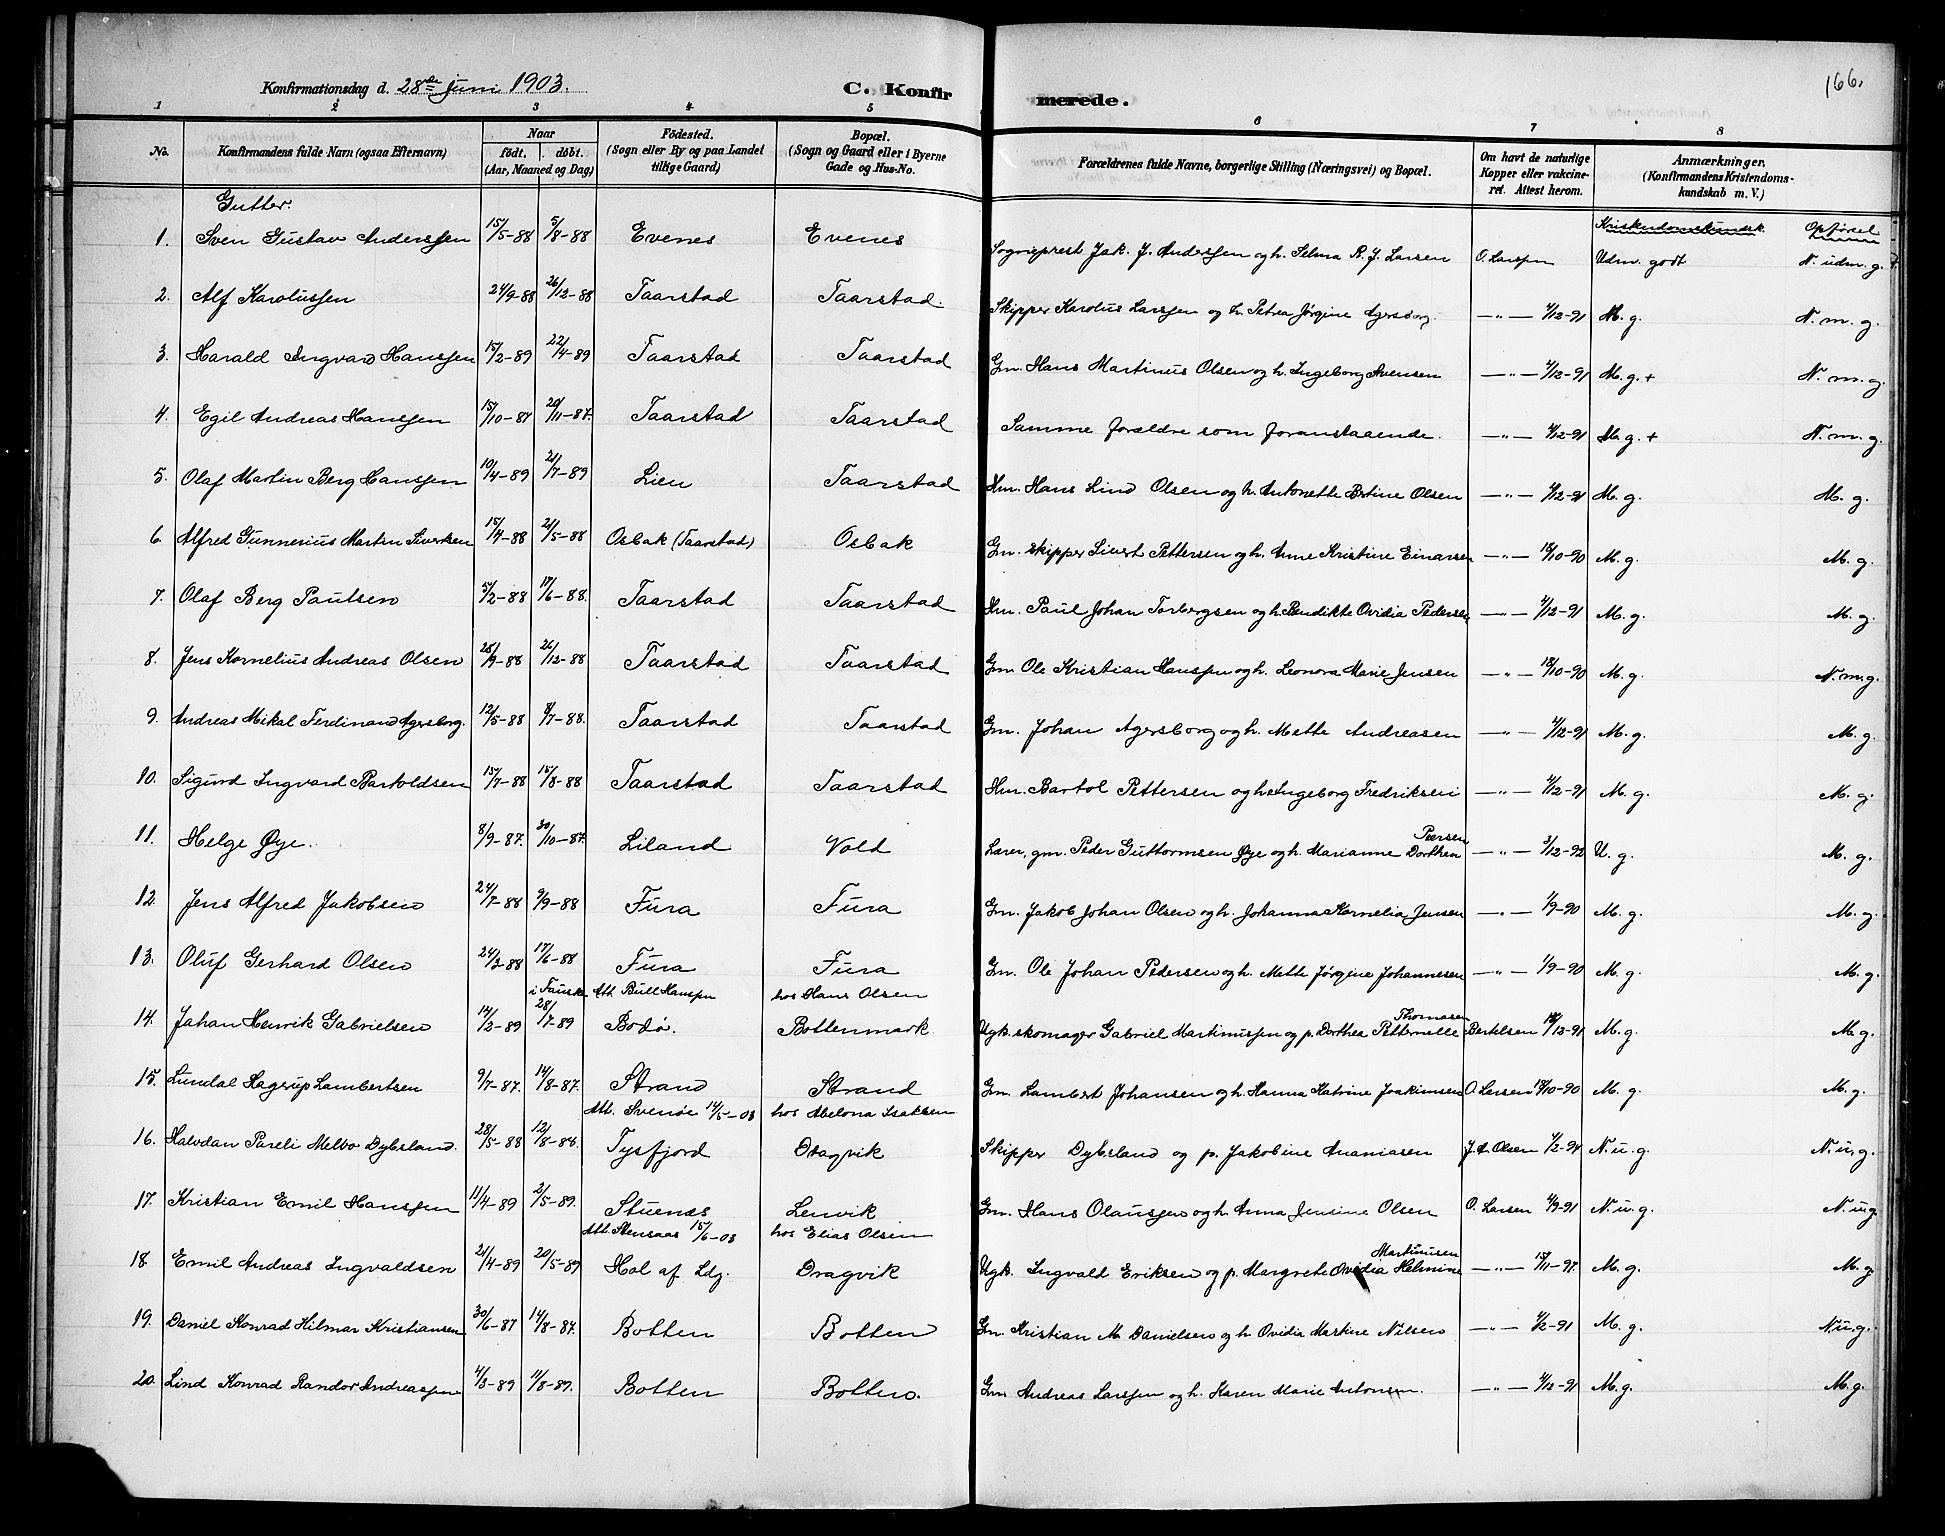 Konfirmationsdag d. 28de juni 1903.
C. Konfirmerede.
166.
1 2 3 4 5 6 7 8
No.
Konfirmandens fulde Navn (ogsaa Efternavn)
Naar
født. døbt.
(Aar, Maaned og Dag)
Födested.
(Sogn eller By og paa Landet
tillige Gaard)
Bopæl.
(Sogn og Gaard eller i Byerne
Gade og Hus-No.
Forældrenes fulde Navne, borgerlige Stilling (Næringsvei) og Bopæl.
Om havt de naturlige
Kopper eller vakcine-
ret. Attest herom.
Anmærkninger.
(Konfirmandens Kristendoms-
kundskab m. V.)
Gutter.
Kristendomskundsk. Opførsel
1. Sven Gustav Anderssen 15/5-88 5/8-88 Evenes Evenes Sogneprest Jak. J. Anderssen og h. Selma R. J. Larsen O. Larssen Udm. godt N. udm. g. +
2. Alf Karolussen 24/9-88 26/12-88 Taarstad Taarstad. Skipper Karolus Larssen og h. Petrea Jørgine Agersborg. —"— 4/12-91 M. g. N. m. g.
3. Harald Ingvard Hanssen 15/2-89 22/4-89 Taarstad Taarstad Gm. Hans Martinus Olsen og h. Ingeborg Svensen —"— 4/12-91 M. g. + N. m. g.
4. Egil Andreas Hanssen 15/10-87 20/11-87. Taarstad Taarstad Samme forældre som foranstaaende. —"— 4/12-91 M. g. + N. m. g.
5. Olaf Martin Berg Hanssen 10/4-89 21/7-89 Lien Taarstad Hm. Hans Lind Olsen og h. Antonette Bertine Olsen —"— 4/12-91 M. g. M. g.
6. Alfred Gunnerius Martin Sivertsen 15/4-88 21/5-88 Osbak (Taarstad) Osbak Gm. skipper Sivert Pettersen og h. Anne Kristine Einarsen —"— 18/10-90 M. g. M. g.
7. Olaf Berg Paulsen 5/2-88 17/6-88. Taarstad Taarstad Hm. Paul Johan Torbergsen og h. Bendikte Ovidia Pedersen —"— 4/12-91 M. g. M. g.
8. Jens Kornelius Andreas Olsen 28/9-88 26/12-88 Taarstad Taarstad Gm. Ole Kristian Hanssen og h. Leonora Marie Jensen —"— 18/10-90 M. g. N. m. g.
9. Andreas Mikal Ferdinand Agersborg. 12/5-88 8/7-88. Taarstad Taarstad Gm. Johan Agersborg og h. Mette Andreasen —"— 4/12-91 M. g. M. g.
10. Sigurd Ingvard Bartoldsen 15/7-88 15/8-88 Taarstad Taarstad Hm. Bartol Pettersen og h. Ingeborg Fredriksen —"— 4/12-91 M. g. M. g.
Peersen
11. Helge Øye. 8/9-87. 30/10-87. Liland Vold Lærer, gm. Peder Guttormsen Øye og h. Marianne Dorthea —"— 3/12-92 U. g. M. g.
12. Jens Alfred Jakobsen 24/7-88 9/9-88 Fura Fura Gm. Jakob Johan Olsen og h. Johanna Kornelia Jensen —"— 1/9-90 M. g. M. g.
13. Oluf Gerhard Olsen 24/3-88 17/6-88 Fura Fura Gm. Ole Johan Pedersen og h. Mette Jørgine Johannesen —"— 1/9-90 M. g. M. g.
i Fauske Att. Bull Hanssen hos Hans Olsen
Thomasen
14. Johan Henrik Gabrielsen 14/2-89 28/7-89 Bodø. Bottenmark Ugk. skomager Gabriel Martinussen og p. Dorthea Petternelle Bertelsen M. g. M. g.
15. Lundal Hagerup Lambertsen 9/7-87. 14/8-87. Strand Strand Gm. Lambert Johansen og h. Hanna Katrine Joakimsen O. Larsen 18/10-90 M. g. M. g.
Att. Svenøe 14/5-03 hos Abelona Isaksen
16. Halvdan Pareli Melbo Dybsland. 28/5-88 12/8-88. Tysfjord Dragvik Skipper Dybsland og p. Jakobine Ananiasen J. A. Olsen 1/2-94 N. u. g. N. u. g.
17. Kristian Emil Hanssen 11/4-89 2/5-89. Stuenes Lenvik Gm. Hans Olaussen og h. Anna Jensine Olsen O. Larsen 4/9-91 N. u. g. N. u. g.
Att. Stensaas 15/6-03 hos Elias Olsen
Martinusen
18. Emil Andreas Ingvaldsen 21/4-89 20/5-89 Hol af Ldg. Dragvik Ugk. Ingvald Eriksen og p. Margrete Ovidia Helmine —"— 15/11-97. M. g. M. g.
19. Daniel Konrad Hilmar Kristiansen 30/6-87 14/8-87. Botten Botten Gm. Kristian M. Danielsen og h. Ovidia Martine Nilsen —"— 4/2-91 M. g. N. u. g.
20. Lind Konrad Randor Andreassen 4/3-89 11/8-89. Botten Botten. Gm. Andreas Larssen og h. Karen Marie Antonsen. —"— 4/12-91 M. g. M. g.